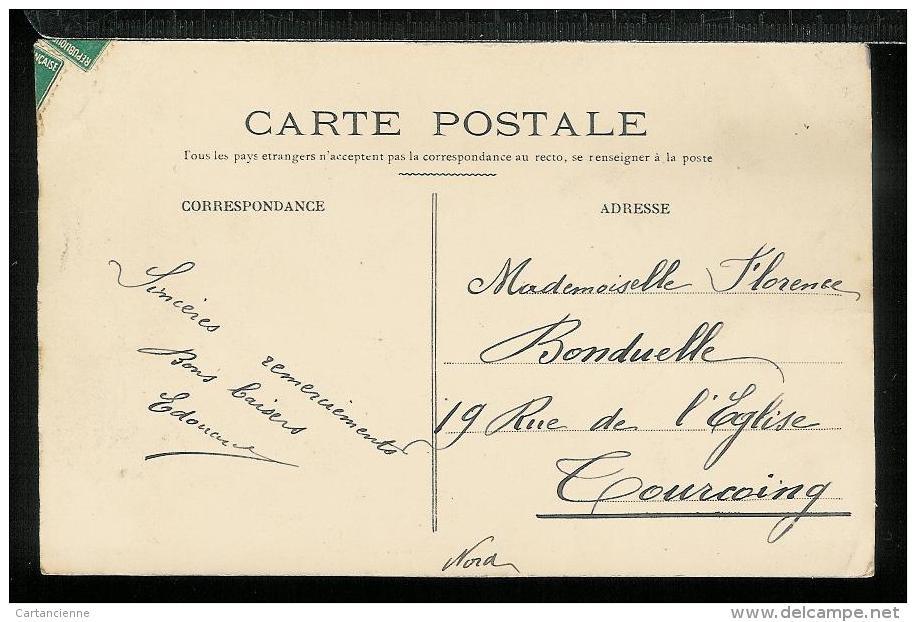 RÉPUBLIQUE
NÇAISE
CARTE POSTALE
Tous les pays etrangers n'acceptent pas la correspondance au recto, se renseigner à la poste
CORRESPONDANCE
Sincères remerciements
Bons baisers
Edouard
ADRESSE
Mademoiselle Florence
Bonduelle
19 Rue de l'Eglise
Tourcoing
Nord
Cartancienne
www.delcampe.net